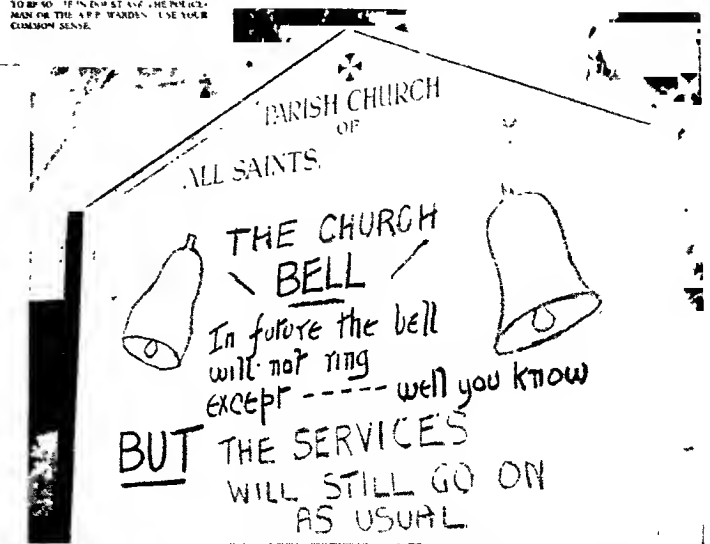 MAN OR THE A.R.P. WARDEN. USE YOUR
COMMON SENSE.
PARISH CHURCH
OF
ALL SAINTS.
THE CHURCH
BELL
In future the bell
will not ring
except ----- well you know
BUT THE SERVICES
WILL STILL GO ON
AS USUAL